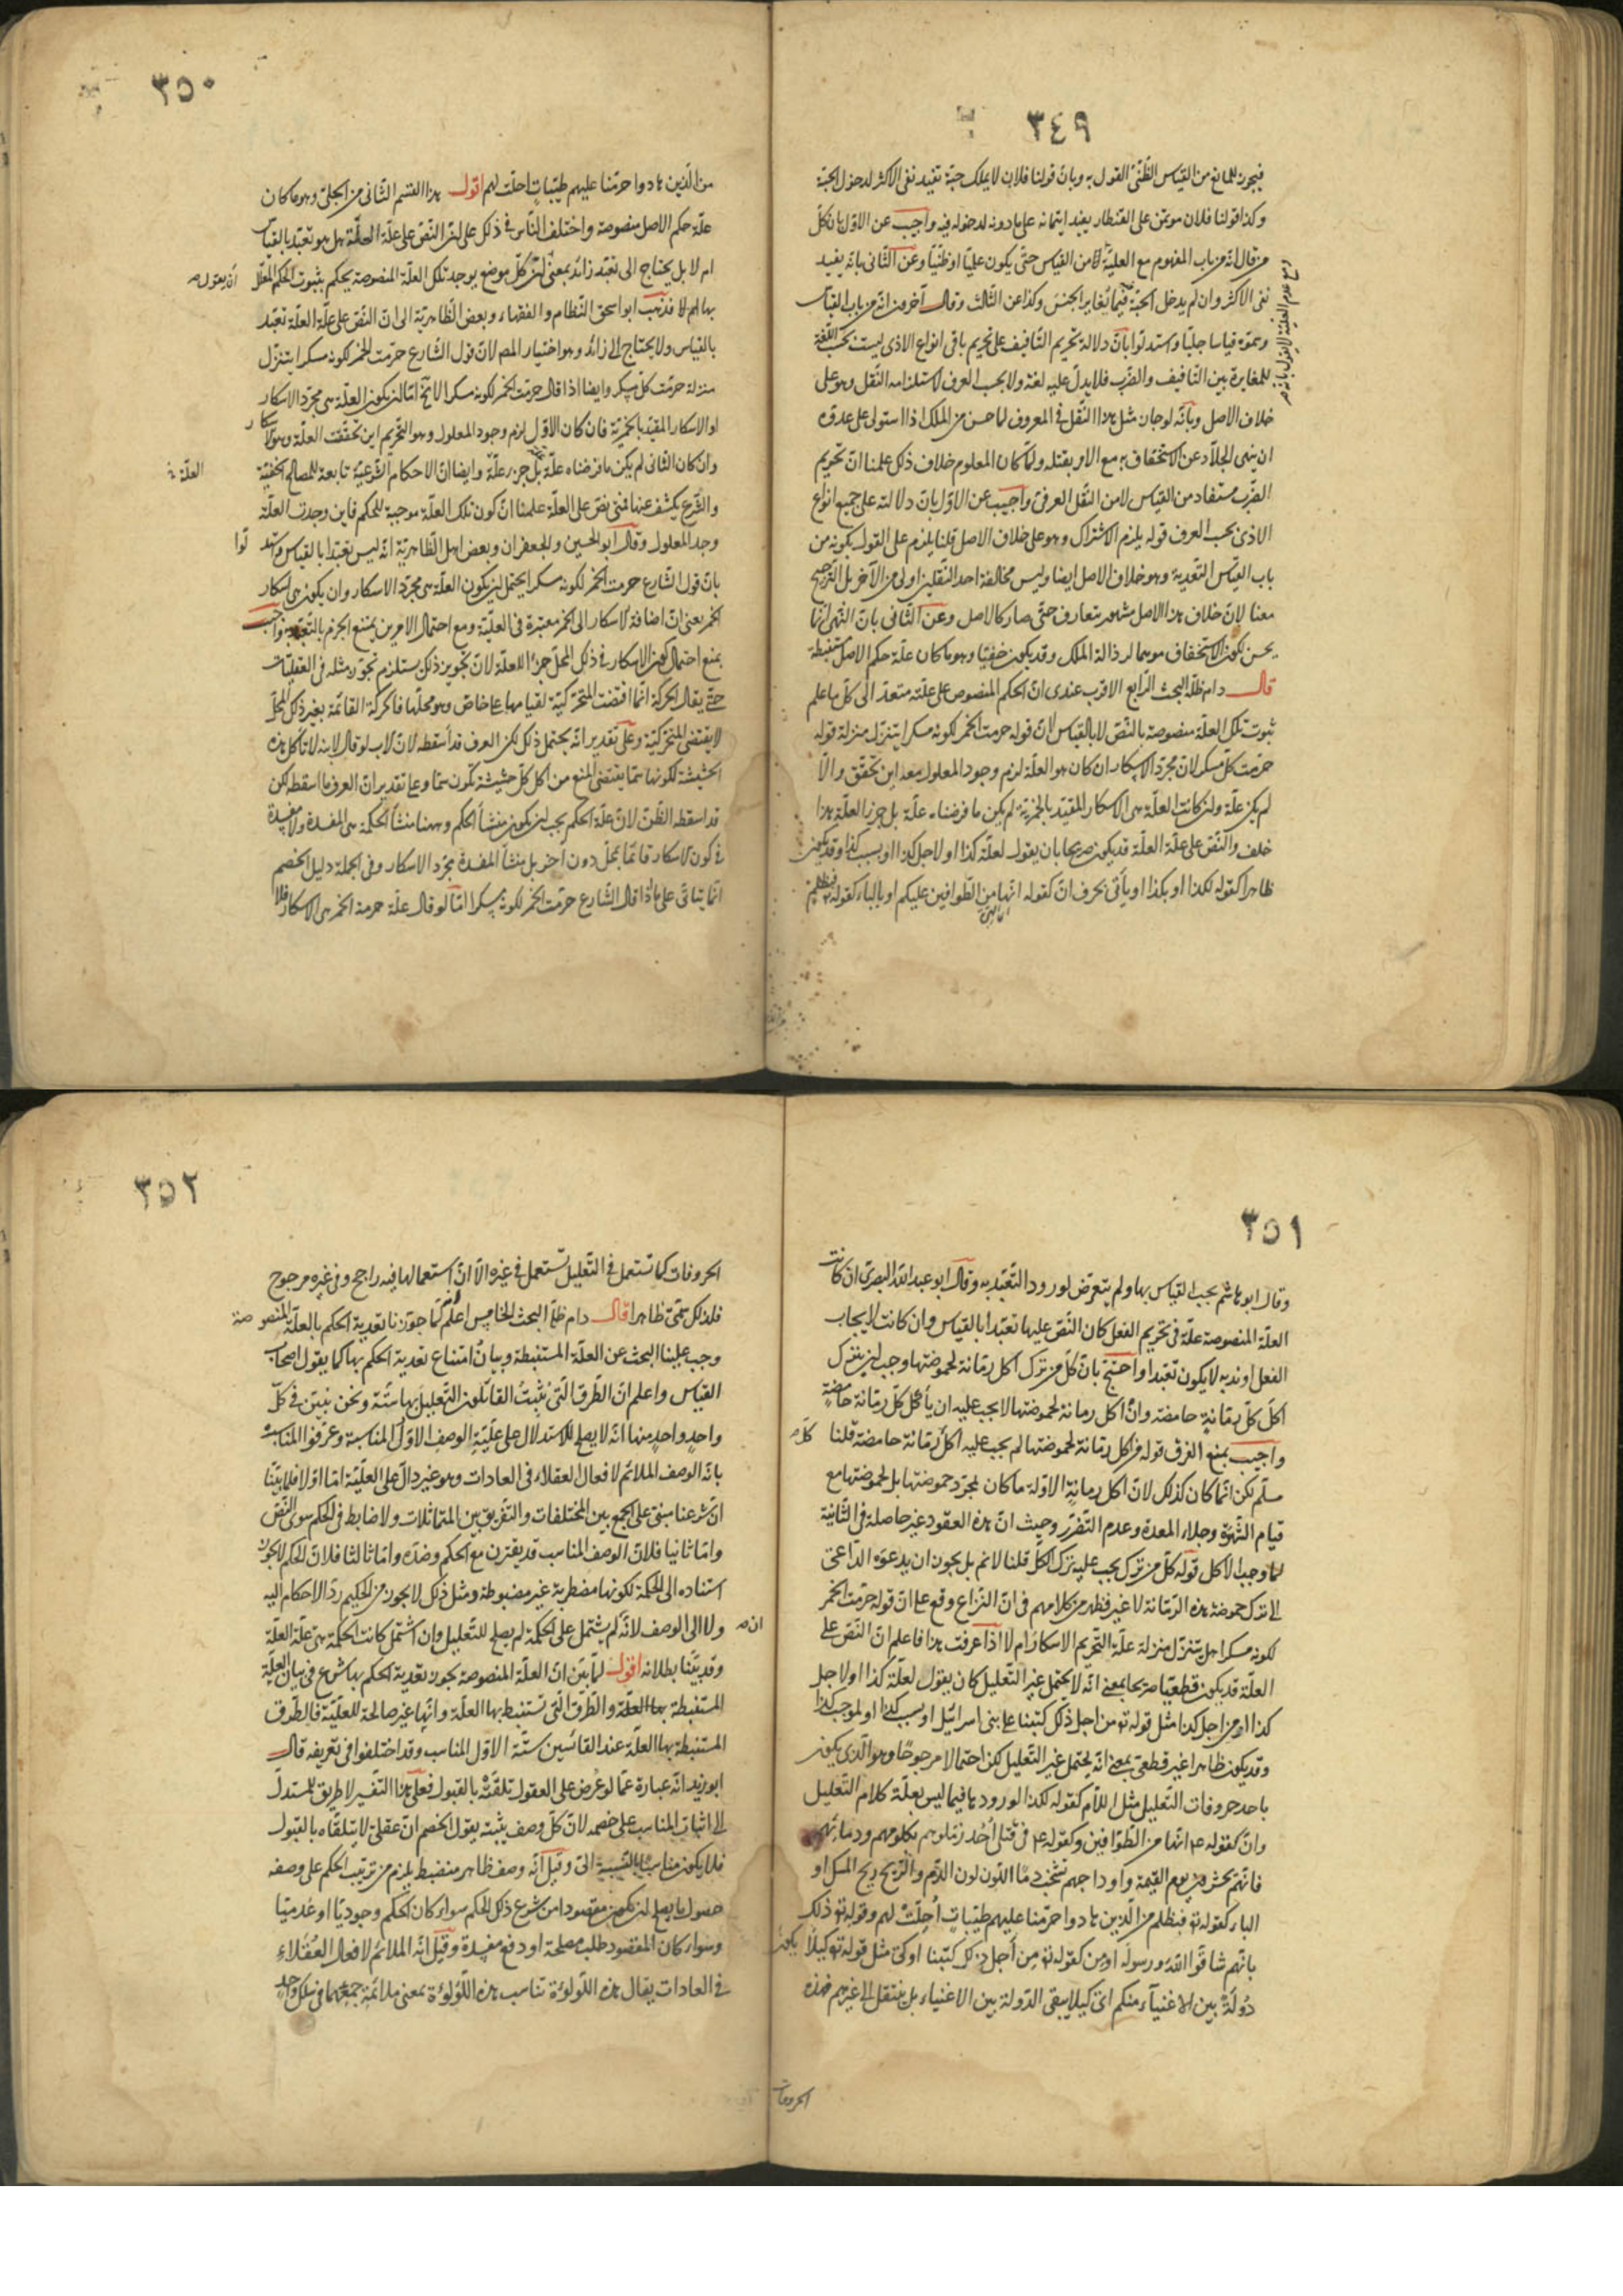 ٣٤٩
فيجوز للمانع من القياس الظني القول به وبان قولنا فلان لا يملك حبة تفيد نفى الاكثر لدخول الحبة
وكذا قولنا فلان مؤتمن على القنطار يفيد ايتمانه على ما دونه لدخوله فيه واجيب عن الاول بان كل
من قال انه من باب المفهوم مع العلية لا من القياس حتى يكون عليا او ظنيا وعن الثانى بانه يفيد
نفى الاكثر وان لم يدخل الحبة فيما تغاير الجنس وكذا عن الثالث وقال آخرون انه من باب القياس
وسموه قياسا جليا واستدلوا بان دلالة تحريم التافيف على تحريم باقى انواع الاذى ليست بحسب اللغة
للمغايرة بين التافيف والضرب فلا يدل عليه لغة ولا بحسب العرف لاستلزامه النقل وهو على
خلاف الاصل وبانه لو جاز مثل هذا النقل فى المعروف لما حسن من الملك اذا استولى على عدوه
ان ينهى الجلاد عن الاستخفاف به مع الامر بقتله ولما كان المعلوم خلاف ذلك علمنا ان تحريم
الضرب مستفاد من القياس لا من النقل العرفى واجيب عن الاول بان دلالته على جميع انواع
الاذى بحسب العرف قوله يلزم الاشتراك وهو على خلاف الاصل قلنا يلزم على القول بكونه من
باب القياس التعدية وهو خلاف الاصل ايضا وليس مخالفة احد النقلين اولى من الآخر بل الترجيح
معنا لان خلاف هذا الاصل مشهور متعارف حتى صار كالاصل وعن الثانى بان النهى انما
يحسن لكون الاستخفاف موهما لرذالة الملك وقد يكون خفيا وهو ما كان علة حكم الاصل مستنبطة
قال دام ظله البحث الرابع الاقرب عندى ان الحكم المنصوص على علته متعد الى كل ما علم
ثبوت تلك العلة منصوصة بالنص لا بالقياس لان قوله حرمت الخمر لكونه مسكرا يتنزل منزلة قوله
حرمت كل مسكر لان مجرد الاسكار ان كان هو العلة لزم وجود المعلول معه اين تحقق والا
لم يكن علة وان كانت العلة هى الاسكار المقيد بالخمرية لم يكن ما فرضناه علة بل جزء العلة هذا
خلف والنص على علة العلة قد يكون صريحا بان يقول لعلة كذا او لاجل كذا او بسبب كذا وقد يكون
ظاهرا كقوله لكذا او بكذا او يأتى بحرف ان كقوله انها من الطوافين عليكم او بالباء كقوله تع فبظلم
٣٥٠
من الذين هادوا حرمنا عليهم طيبات احلت لهم اقول هذا القسم الثانى من الجلى وهو ما كان
علة حكم الاصل منصوصة واختلف الناس فى ذلك على ان النص على علة العلة هل هو تعبد بالقياس
ام لا بل يحتاج الى تعبد زائد بمعنى ان كل موضع يوجد تلك العلة المنصوصة يحكم بثبوت الحكم المعلل
بها ام لا فذهب ابو اسحق النظام والفقهاء وبعض الظاهرية الى ان النص على علة العلة تعبد
بالقياس ولا يحتاج الى زائد وهو اختيار المص لان قول الشارع حرمت الخمر لكونه مسكرا يتنزل
منزلة حرمت كل مسكر وايضا اذا قال حرمت الخمر لكونه مسكرا لا يخ اما ان يكون العلة هى مجرد الاسكار
او الاسكار المقيد بالخمرية فان كان الاول لزم وجود المعلول وهو التحريم اين تحققت العلة وهو الاسكار
وان كان الثانى لم يكن ما فرضناه علة بل جزء علة وايضا ان الاحكام الشرعية تابعة للمصالح الخفية
والشرع يكشف عنها فمتى نص على العلة علمنا ان كون تلك العلة موجبة للحكم فاين وجدت العلة
وجد المعلول وقال ابو الحسين والجعفران وبعض اهل الظاهرية انه ليس تعبدا بالقياس واستدلوا
بان قول الشارع حرمت الخمر لكونه مسكرا يحتمل ان يكون العلة هى مجرد الاسكار وان يكون هى اسكار
الخمر يعنى ان اضافة الاسكار الى الخمر معتبرة فى العلية ومع احتمال الامرين يمتنع الجزم بالتعبد واجيب
بمنع احتمال كون الاسكار فى ذلك المحل جزء العلة لان تجويز ذلك يستلزم تجويز مثله فى العقليات
حتى يقال الحركة انما اقتضت المتحركية لقيامها على خاص وهو محلها فالحركة القائمة بغير ذلك المحل
لا يقتضى المتحركية وعلى تقدير انه يحتمل ذلك لكن العرف قد اسقطه لان الاب لو قال لابنه لا تأكل هذه
الحشيشة لكونها سما يقتضى المنع من اكل كل حشيشة تكون سما وعلى تقدير ان العرف ما اسقطه لكن
قد اسقطه الظن لان علة الحكم يجب ان يكون منشأ الحكم وههنا منشأ الحكمة هى المفسدة ولا مفسدة
فى كون الاسكار قائما بمحل دون آخر بل منشأ المفسدة مجرد الاسكار وفى الجملة دليل الخصم
انما يتأتى على ما اذا قال الشارع حرمت الخمر لكونه مسكرا اما لو قال علة حرمة الخمر هى الاسكار فلا
٣٥١
وقال ابو هاشم يجب القياس بها ولم يتعرض لورود التعبد به وقال ابو عبد الله البصرى ان كانت
العلة المنصوصة علة فى تحريم الفعل كان النص عليها تعبدا بالقياس وان كانت لايجاب
الفعل او ندبه لا يكون تعبدا واحتج بان كل من ترك اكل رمانة لحموضتها وجب ان يترك
اكل كل رمانة حامضة وان اكل رمانة لحموضتها لا يجب عليه ان يأكل كل رمانة حامضة
واجيب بمنع الفرق قوله من اكل رمانة لحموضتها لم يجب عليه اكل كل رمانة حامضة قلنا
مسلم لكن انما كان كذلك لان اكل رمانة الاولة ما كان لمجرد حموضتها بل لحموضتها مع
قيام الشهوة وخلاء المعدة وعدم التضرر وحيث ان هذه العقود غير حاصلة فى الثانية
لما وجب الاكل قوله كل من ترك يجب عليه ترك الكل قلنا لا نم بل يجوز ان يدعوه الداعى
الى ترك حموضة هذه الرمانة لا غير فظهر من كلامهم فى ان النزاع وقع على ان قوله حرمت الخمر
لكونه مسكرا هل يتنزل منزلة علة التحريم الاسكار ام لا اذا عرفت هذا فاعلم ان النص على
العلة قد يكون قطعيا صريحا بمعنى انه لا يحتمل غير التعليل كان يقول لعلة كذا او لاجل
كذا او من اجل كذا مثل قوله تع من اجل ذلك كتبنا على بنى اسرائيل او بسبب كذا او لموجب كذا
وقد يكون ظاهرا غير قطعى بمعنى انه يحتمل غير التعليل لكن احتمالا مرجوحا وهو الذى يكون
باحد حروفات التعليل مثل اللام كقوله لكذا لورودها فيما ليس بعلة كلام التعليل
وان كقوله ع انها من الطوافين وكقوله ع فى قتلى احد زملوهم بكلومهم ودمائهم
فانهم يحشرون يوم القيمة واوداجهم تشخب دما اللون لون الدم والريح ريح المسك او
الباء كقوله تع فبظلم من الذين هادوا حرمنا عليهم طيبات احلت لهم وقوله تع ذلك
بانهم شاقوا الله ورسوله او من كقوله تع من اجل ذلك كتبنا او كى مثل قوله تع كيلا يكون
دولة بين الاغنياء منكم اى كيلا يبقى الدولة بين الاغنياء بل ينتقل الى غيرهم فهذه
الحروفات
٣٥٢
الحروفات كما تستعمل فى التعليل تستعمل فى غيره الا ان استعمالها فيه راجح وفى غيره مرجوح
فلذلك سمى ظاهرا قال دام ظله البحث الخامس اعلم لما جوزنا تعدية الحكم بالعلة المنصوصة
وجب علينا البحث عن العلة المستنبطة وبيان امتناع تعدية الحكم بها كما يقول اصحاب
القياس واعلم ان الطرق التى يثبت القائلون التعليل بها ستة ونحن نبين فى كل
واحد واحد منها انه لا يصلح للاستدلال على علية الوصف الاول المناسبة وعرفوا المناسب
بانه الوصف الملائم لافعال العقلاء فى العادات وهو غير دال على العلية اما اولا فلما بينا
ان شرعنا مبنى على الجمع بين المختلفات والتفريق بين المتماثلات ولا ضابط فى الحكم سوى النص
واما ثانيا فلان الوصف المناسب قد يقترن مع الحكم وضده واما ثالثا فلان الحكم لا يجوز
استناده الى الحكمة لكونها مضطربة غير مضبوطة ومثل ذلك لا يجوز من الحكيم رد الاحكام اليه
ولا الى الوصف لانه ان لم يشتمل على الحكمة لم يصلح للتعليل وان اشتمل كانت الحكمة هى علة العلة
وقد بينا بطلانه اقول لما بين ان العلة المنصوصة يجوز تعدية الحكم بها شرع فى بيان العلة
المستنبطة بها العلة والطرق التى تستنبط بها العلة وانها غير صالحة للعلية فالطرق
المستنبطة بها العلة عند القائسين ستة الاول المناسب وقد اختلفوا فى تعريفه قال
ابو زيد انه عبارة عما لو عرض على العقول تلقته بالقبول فعلى هذا التفسير لا طريق للمستدل
الى اثبات المناسب على خصمه لان كل وصف يثبته يقول الخصم ان عقلى لا يتلقاه بالقبول
فلا يكون مناسبا بالنسبة الى وقيل انه وصف ظاهر منضبط يلزم من ترتيب الحكم على وصفه
حصول ما يصلح ان يكون مقصودا من شرع ذلك الحكم سواء كان الحكم وجوديا او عدميا
وسواء كان المقصود طلب مصلحة او دفع مفسدة وقيل انه الملائم لافعال العقلاء
فى العادات يقال هذه اللؤلؤة تناسب هذه اللؤلؤة بمعنى ملائمة جمعهما فى سلك واحد